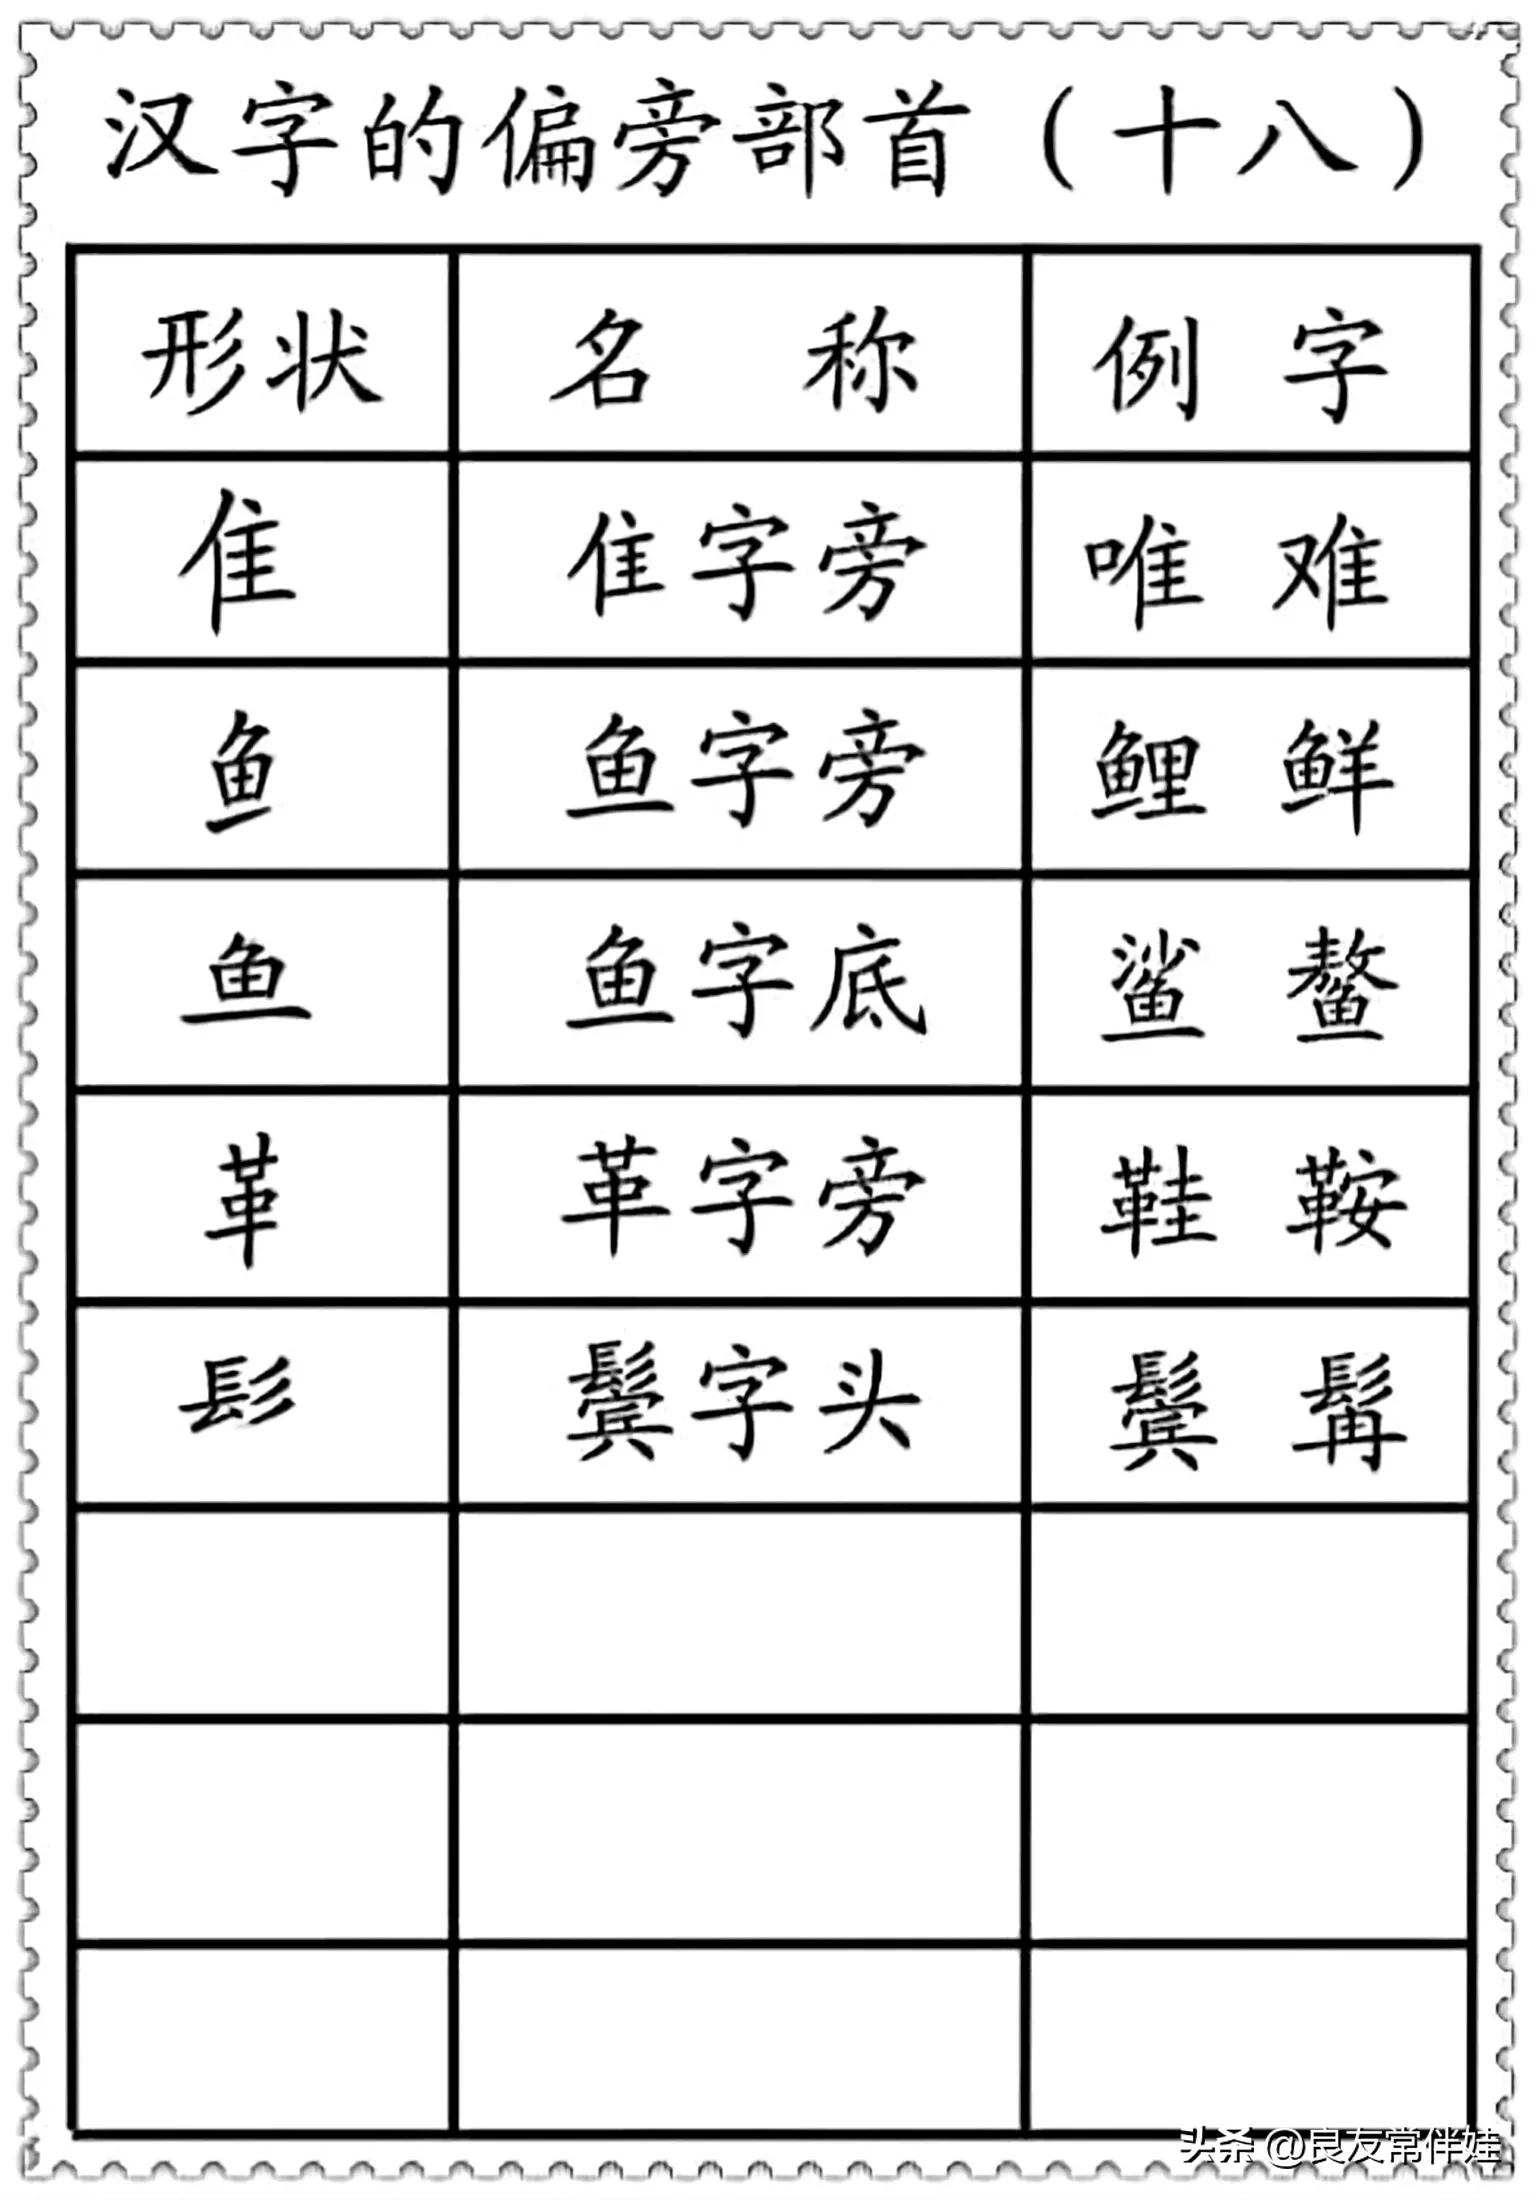 汉字的偏旁部首（十八）
形状 名 称 例 字
隹 隹字旁 唯 难
鱼 鱼字旁 鲤 鲜
鱼 鱼字底 鲨 鳌
革 革字旁 鞋 鞍
髟 鬓字头 鬓 髯
头条 @良友常伴娃